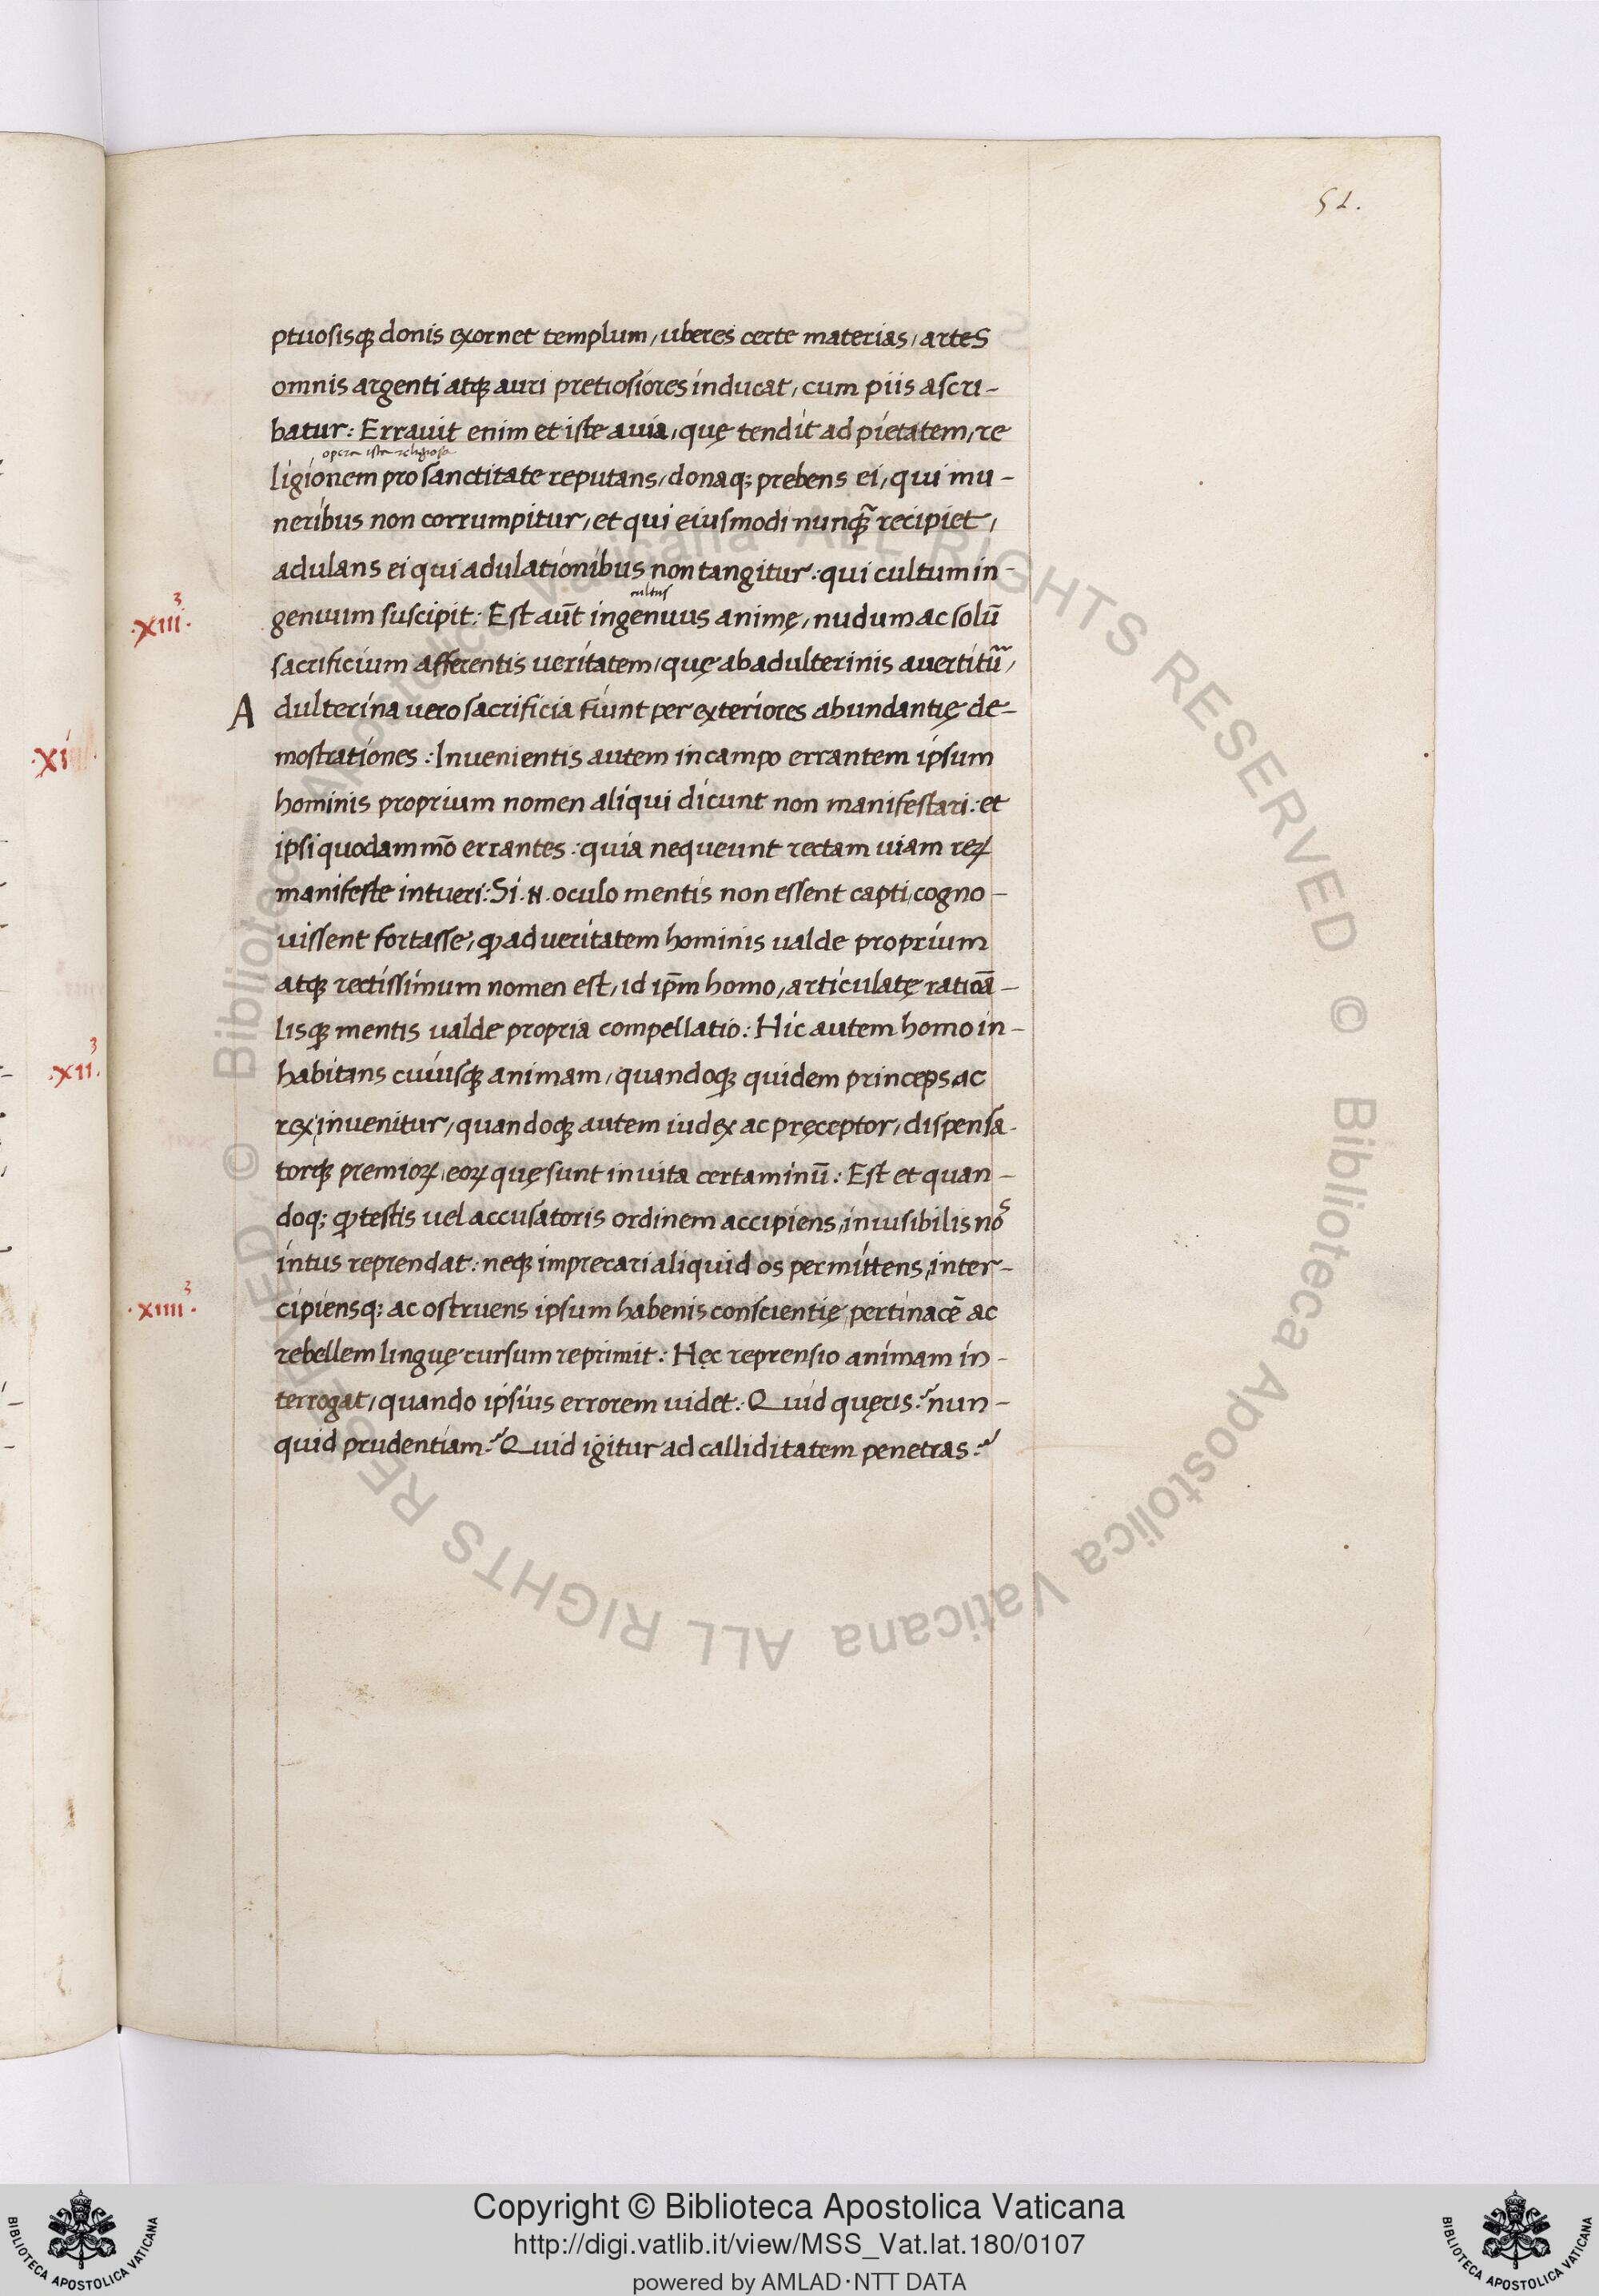 52.
ptuosisqꝫ donis exornet templum, uberes certe materias, artes
omnis argenti atqꝫ auri pretiosiores inducat, cum piis ascri-
batur: Errauit enim et iste a uia, quę tendit ad pietatem, re
opera ista religiosa
ligionem pro sanctitate reputans, donaq; prebens ei, qui mu-
neribus non corrumpitur, et qui eiusmodi nunqꝫ̃ recipiet,
adulans ei qui adulationibus non tangitur: qui cultum in-
cultus
3
·xiii·
genuum suscipit: Est aūt ingenuus animę, nudum ac solū
sacrificium afferentis ueritatem, quę ab adulterinis auertitu᷑,
Adulterina uero sacrificia fiunt per exteriores abundantię de-
·xi
mostrationes: Inuenientis autem in campo errantem ipsum
hominis proprium nomen aliqui dicunt non manifestari: et
ipsi quodammō errantes: quia nequeunt rectam uiam reꝝ
manifeste intueri: Si .N. oculo mentis non essent capti, cogno-
uissent fortasse, ꝙ ad ueritatem hominis ualde proprium
atqꝫ rectissimum nomen est, id ip̄m homo, articulatę rationā-
lisqꝫ mentis ualde propria compellatio: Hic autem homo in-
3
·xii·
habitans cuiusqꝫ animam, quandoqꝫ quidem princeps, ac
rex, inuenitur, quandoqꝫ autem iudex ac pręceptor, dispensa-
torqꝫ premioꝝ, eoꝝ quę sunt in uita certaminū: Est et quan-
doq; ꝙ testis uel accusatoris ordinem accipiens, inuisibilis no᷒
intus reprendat: neqꝫ imprecari aliquid os permittens, inter-
3
·xiiii·
cipiensq; ac ostruens ipsum habenis conscientię, pertinacē ac
rebellem linguę cursum reprimit: Hęc reprensio animam in-
terrogat, quando ipsius errorem uidet: Quid quęris? nun-
quid prudentiam? Quid igitur ad calliditatem penetras?
© Biblioteca Apostolica Vaticana ALL RIGHTS RESERVED © Biblioteca Apostolica Vaticana ALL RIGHTS RESERVED
BIBLIOTECA APOSTOLICA VATICANA
Copyright © Biblioteca Apostolica Vaticana
http://digi.vatlib.it/view/MSS_Vat.lat.180/0107
powered by AMLAD·NTT DATA
BIBLIOTECA APOSTOLICA VATICANA